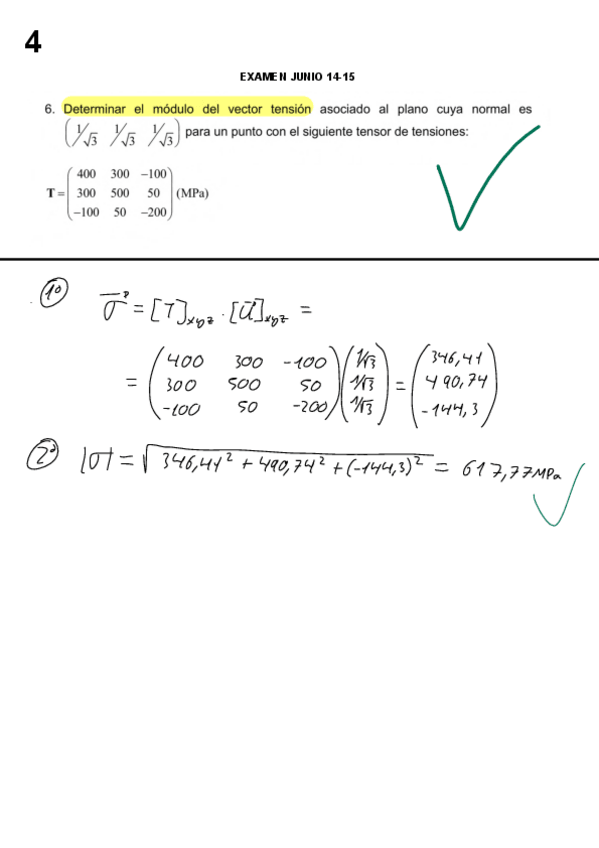 4
EXAMEN JUNIO 14-15
6. Determinar el módulo del vector tensión asociado al plano cuya normal es
(1/√3 1/√3 1/√3) para un punto con el siguiente tensor de tensiones:
400 300 −100
T = 300 500 50 (MPa)
−100 50 −200
1º σ = [T]xyz · [u]xyz =
400 300 -100 1/√3 346,41
= 300 500 50 1/√3 = 490,74
-100 50 -200 1/√3 -144,3
2º |σ| = √346,41² + 490,74² + (-144,3)² = 617,77 MPa